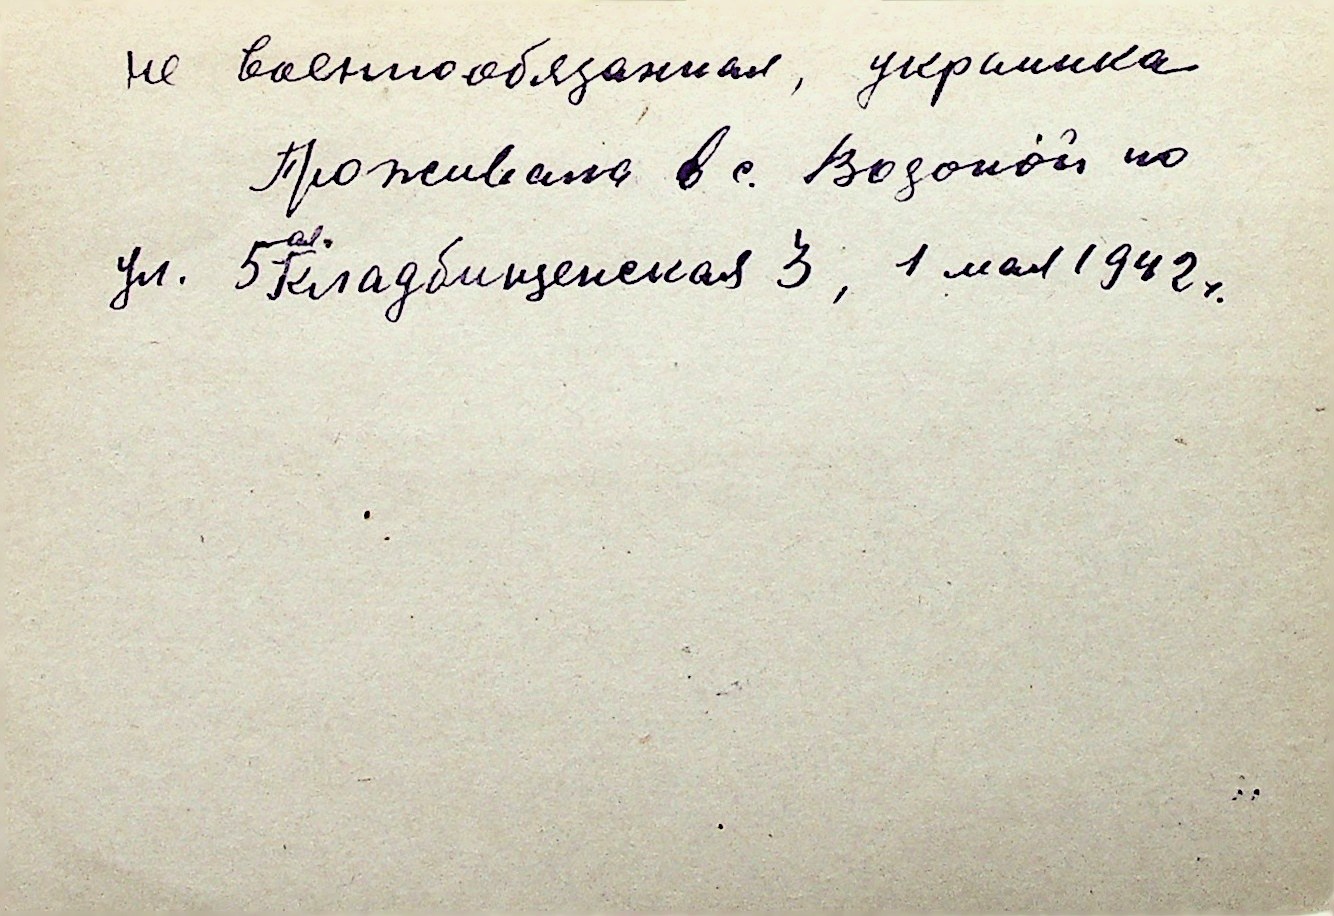 не военнообязанная, украинка
Проживала в с. Водопой по
ул. 5 ая. Кладбищенская 3, 1 мая 1942 г.